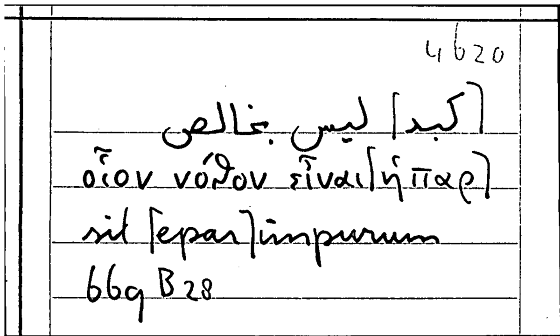 4620
[كبد] ليس بخالص
οἷον νόθον εἶναι [ἧπαρ]
sit [epar] impurum
669 B 28